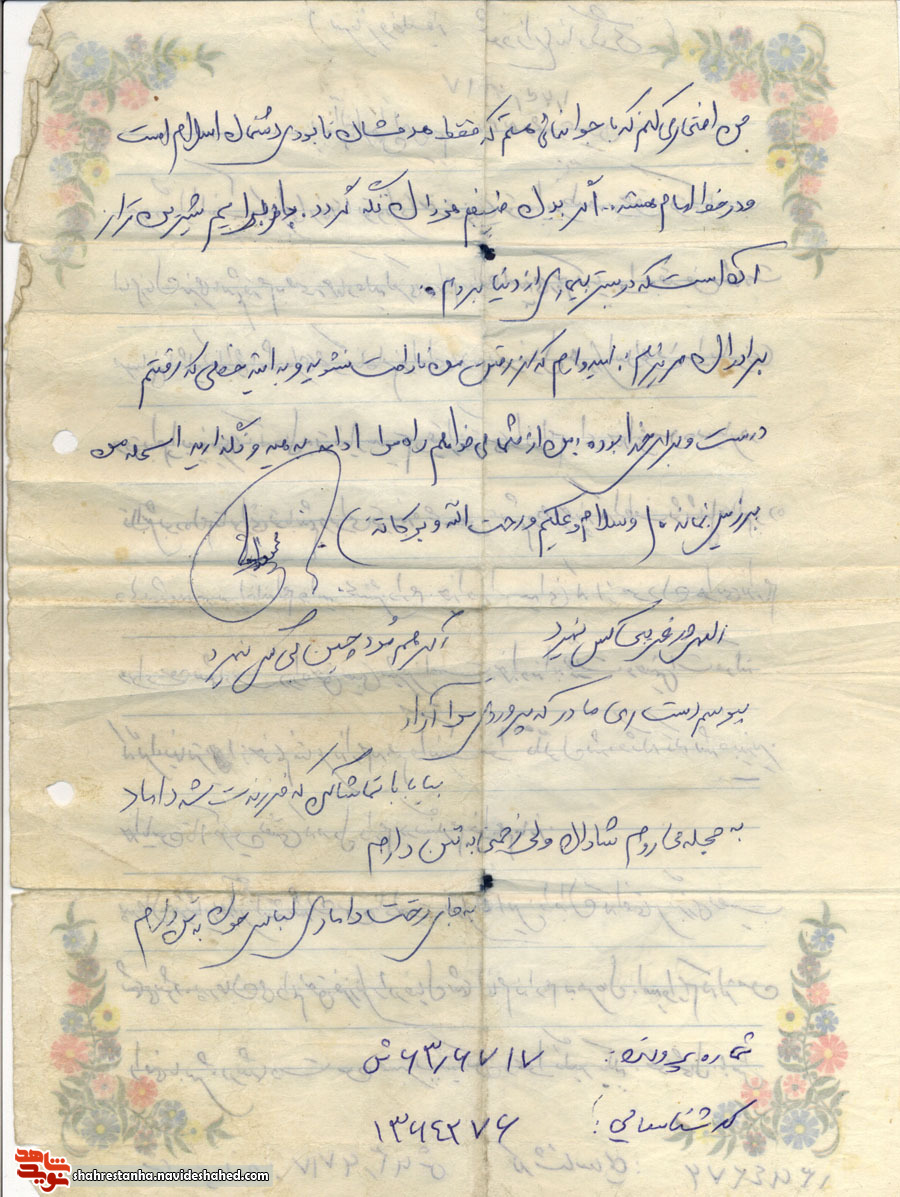 من افتخار می کنم که با جوانهائی هستم که فقط هدفشان نابودی دشمنان اسلام است
و در خط امام هستند.. اگر بدن ضعیفم خوداں تکه گردد. برایم شیرین تر از
آن است که در بستر بیماری از دنیا بروم.
برادران عزیزم: امیدوارم که از رفتن من ناراحت نشوید و بدانید خطی که رفتم
درست و برای خدا بوده من از شما می خواهم راه مرا ادامه بدهید و نگذارید اسلحه من
بر زمین بماند. (وسلام و علیکم و رحمت الله و برکاته)
الهی در غریبی کس نمیرد
اگر هم مرد چنین بی کس نمیرد
ببوسم دستای مادر که پروردی مرا آزاد
بیا بابا تماشا کن که فرزندت شده داماد
به حجله می روم شادان ولی زخمی به تن دارم
به جای رخت دامادی لباس خون به تن دارم
شماره پرونده: ۶۳۸۶۷۱۷ ش
کد شناسایی: ۱۳۶۴۳۷۶
نوید شاهد
shahrestanha.navideshahed.com